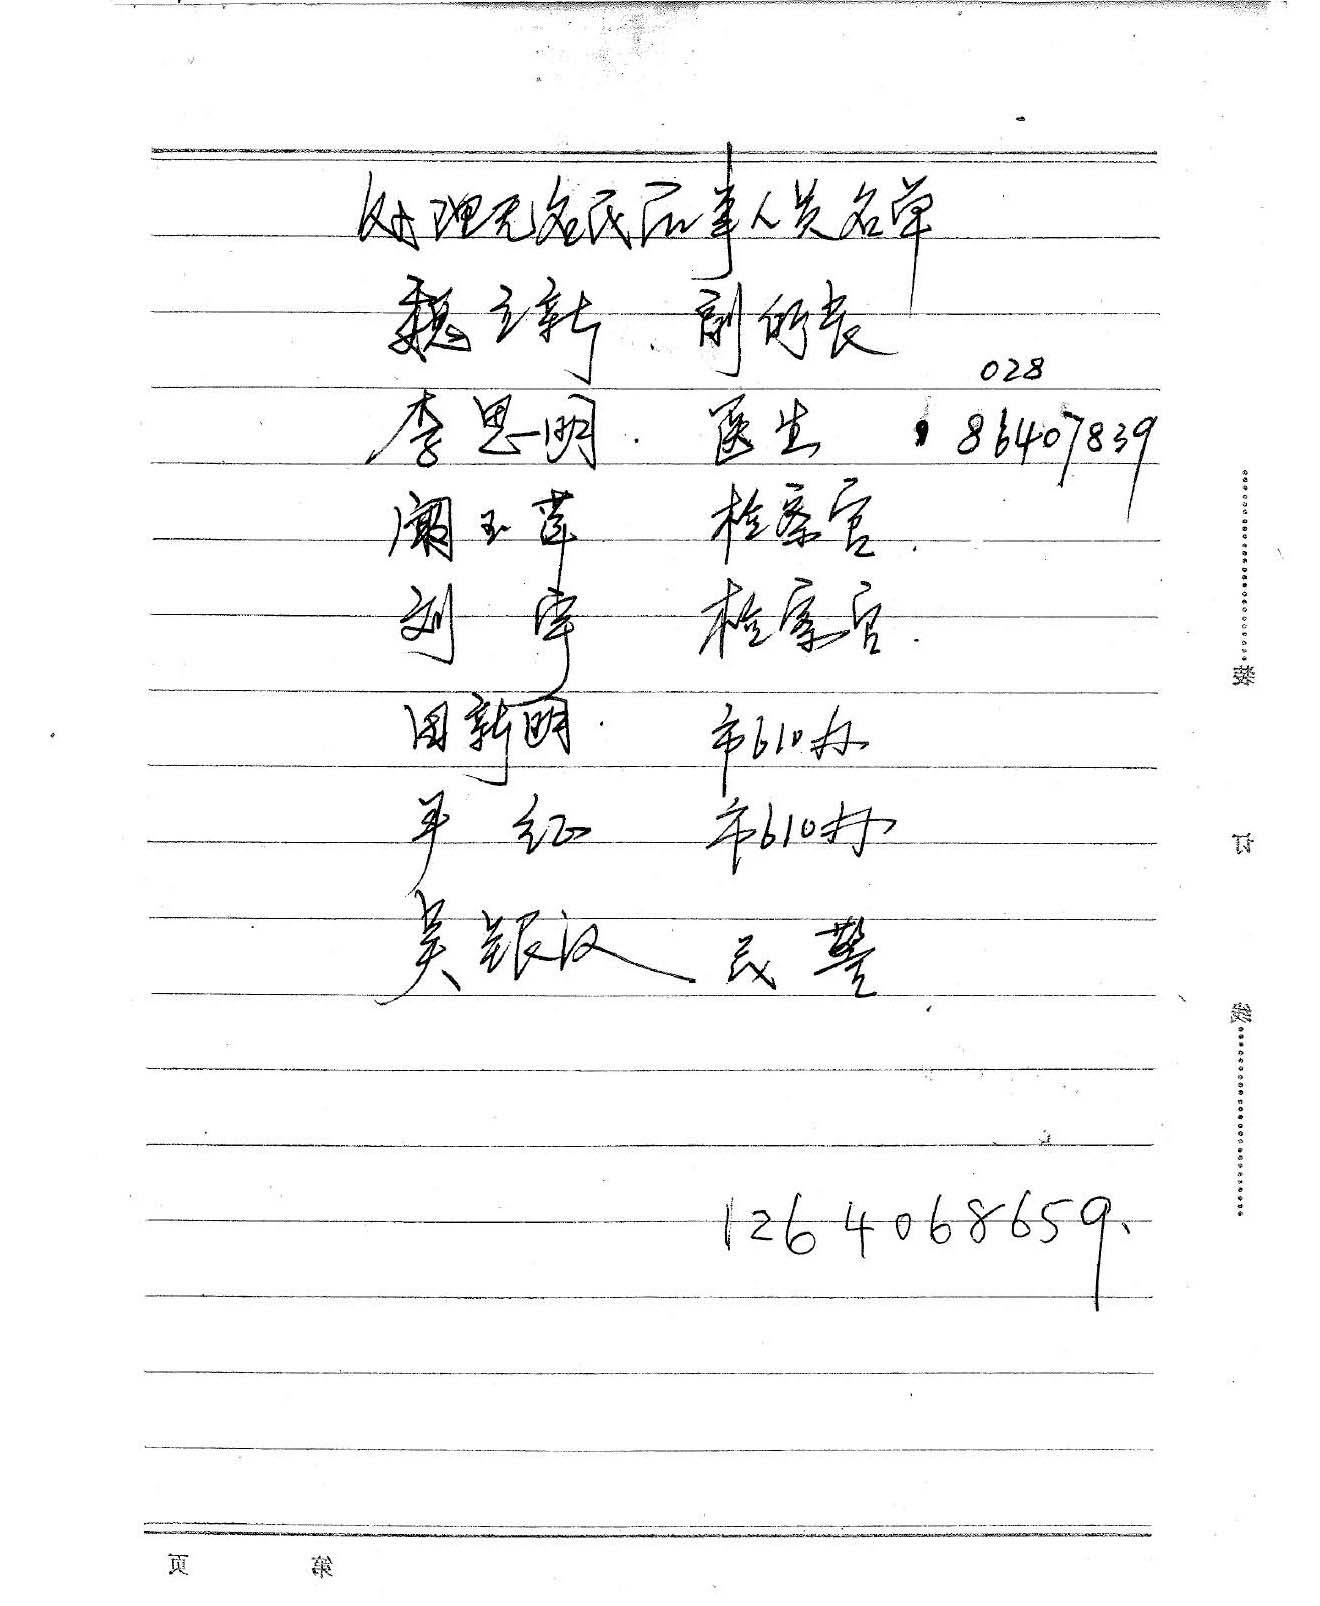 处理无名氏后事人员名单
魏立新 副所长
028
李思明 医生 86407839
阚玉萍 检察官
刘宇 检察官
田新明 市610办
平红 市610办
吴银汉 民警
1264068659
装
订
线
第 页